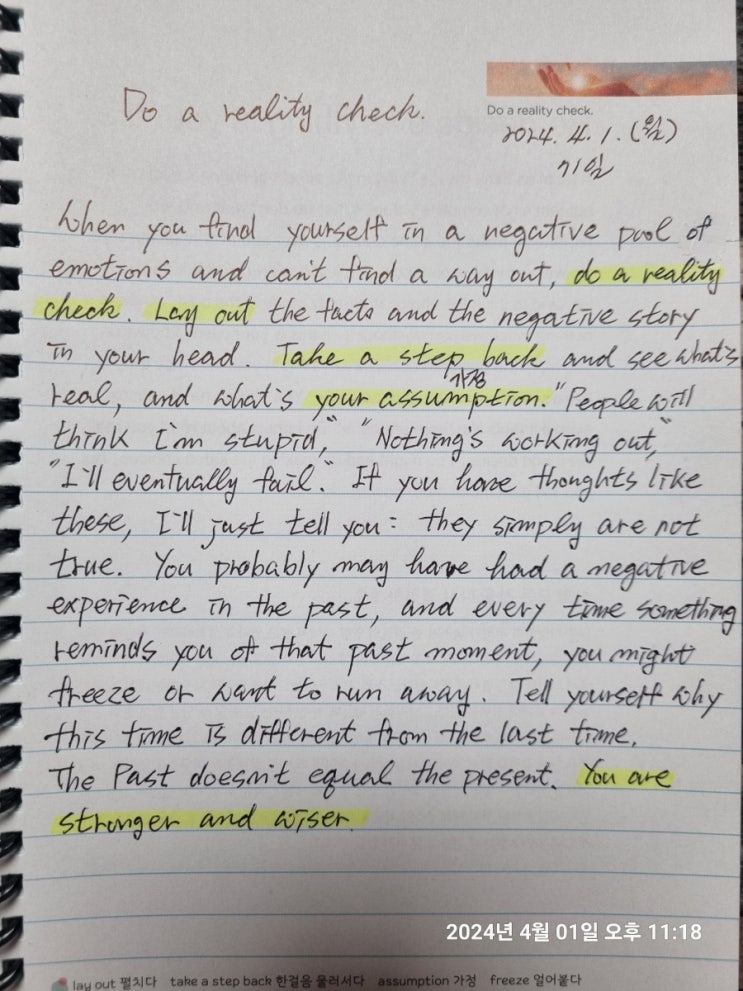 Do a reality check.
Do a reality check.
2024. 4. 1. (월)
71일
When you find yourself in a negative pool of
emotions and can't find a way out, do a reality
check. Lay out the facts and the negative story
in your head. Take a step back and see what's
가정
real, and what's your assumption. "People will
think I'm stupid," "Nothing's working out,"
"I'll eventually fail." If you have thoughts like
these, I'll just tell you: they simply are not
true. You probably may have had a negative
experience in the past, and every time something
reminds you of that past moment, you might
freeze or want to run away. Tell yourself why
this time is different from the last time.
The Past doesn't equal the present. You are
stronger and wiser.
2024년 4월 01일 오후 11:18
lay out 펼치다 take a step back 한걸음 물러서다 assumption 가정 freeze 얼어붙다